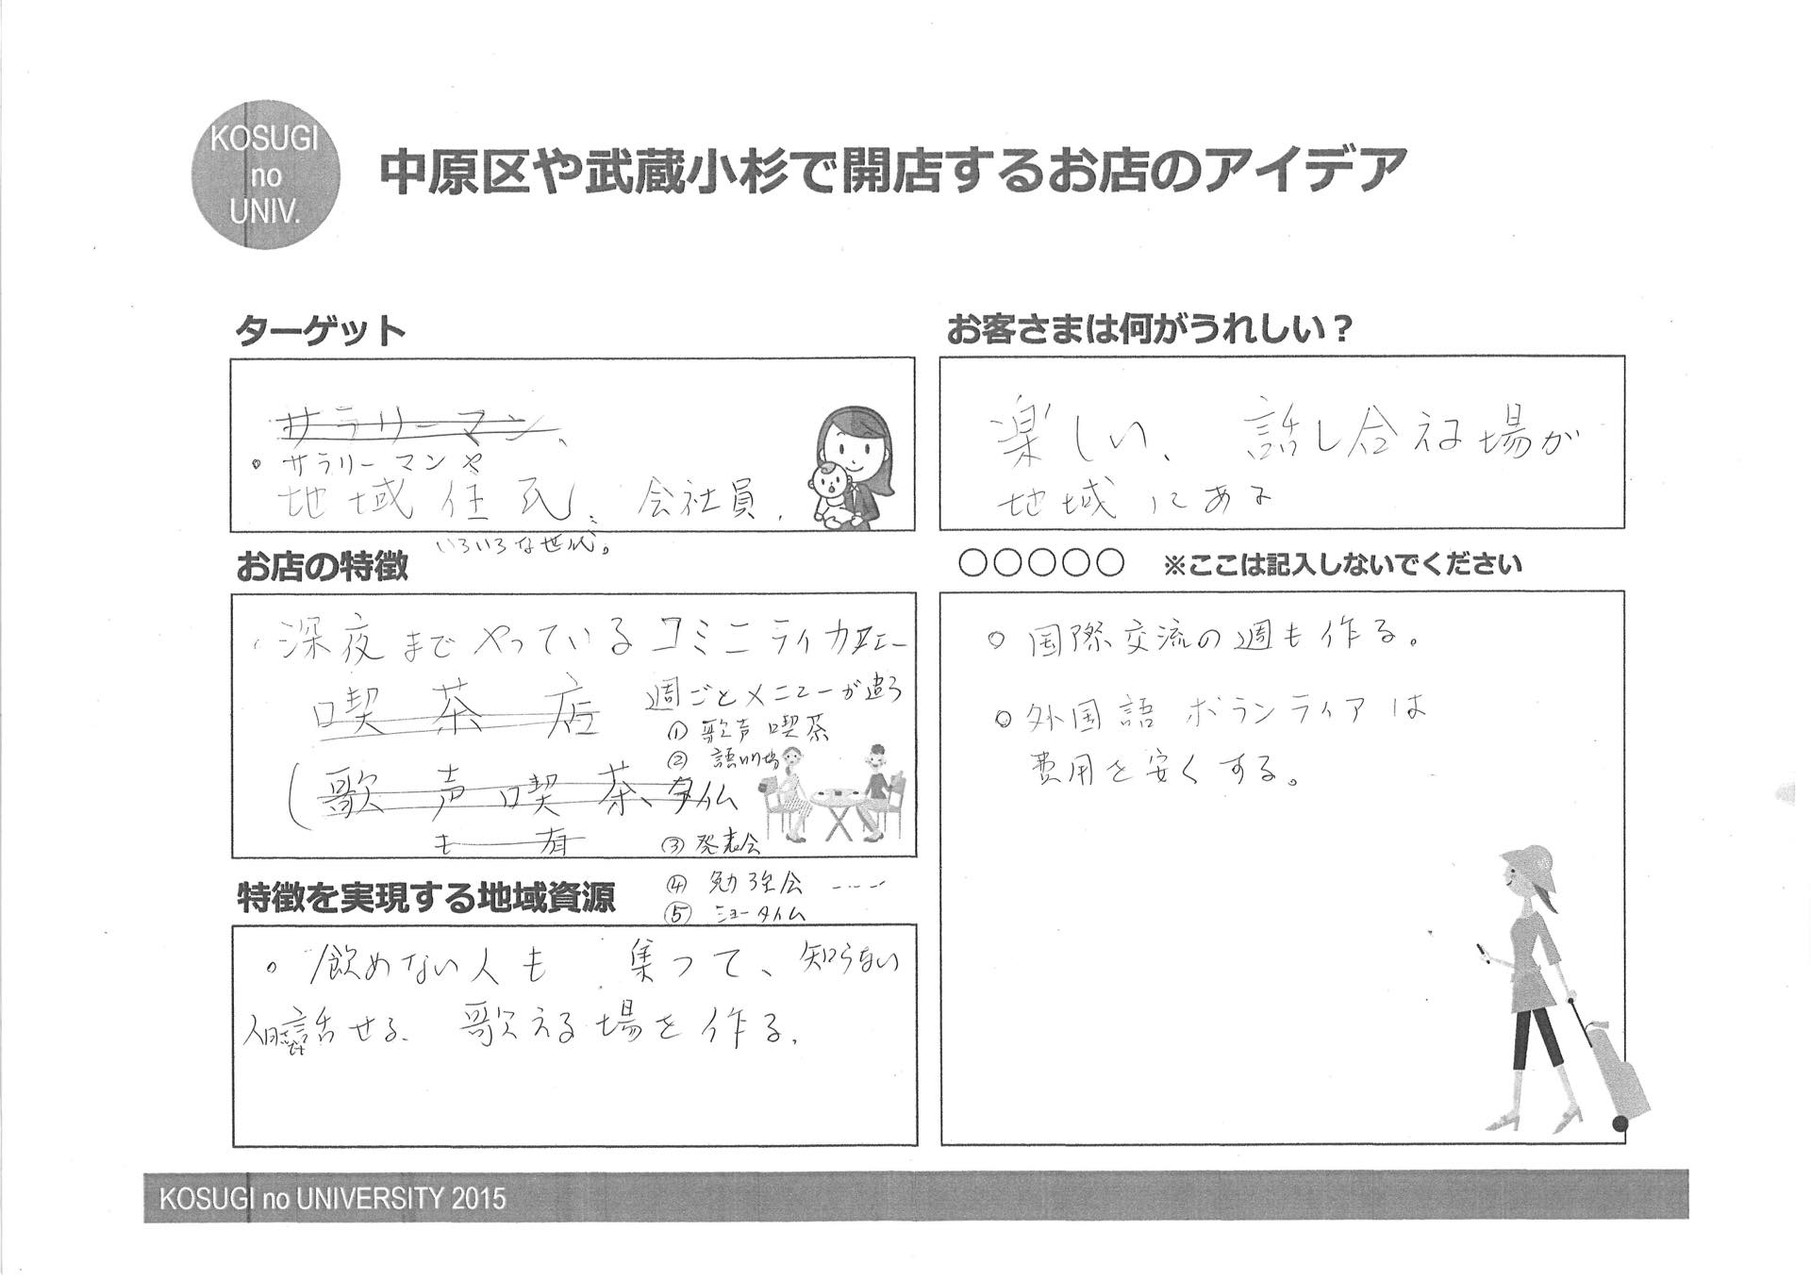 KOSUGI
no
UNIV.
中原区や武蔵小杉で開店するお店のアイデア
ターゲット
サラリーマン、
。サラリーマンや
地域住民、会社員、
いろいろな世代。
お客さまは何がうれしい？
楽しい、話し合える場が
地域にある
お店の特徴
・深夜までやっているコミニティカフェー
喫茶店
週ごとメニューが違う
① 歌声喫茶
② 語り場
(歌声喫茶、タイム
も有
③ 発表会
④ 勉強会 ----
⑤ ショータイム
○○○○○ ※ここは記入しないでください
○ 国際交流の週も作る。
○ 外国語ボランティアは
費用を安くする。
特徴を実現する地域資源
。飲めない人も集って、知らない
話せる、歌える場を作る、
KOSUGI no UNIVERSITY 2015